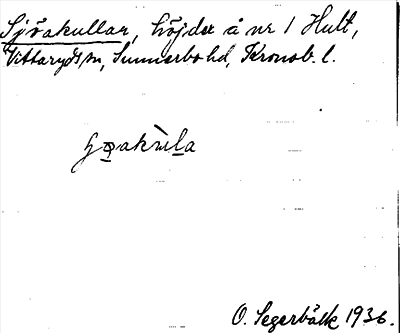 Sjöakullar, höjder å nr 1 Hult,
Vittaryds sn, Sunnerbo hd, Kronob. l.
O. Segerbäck 1936.